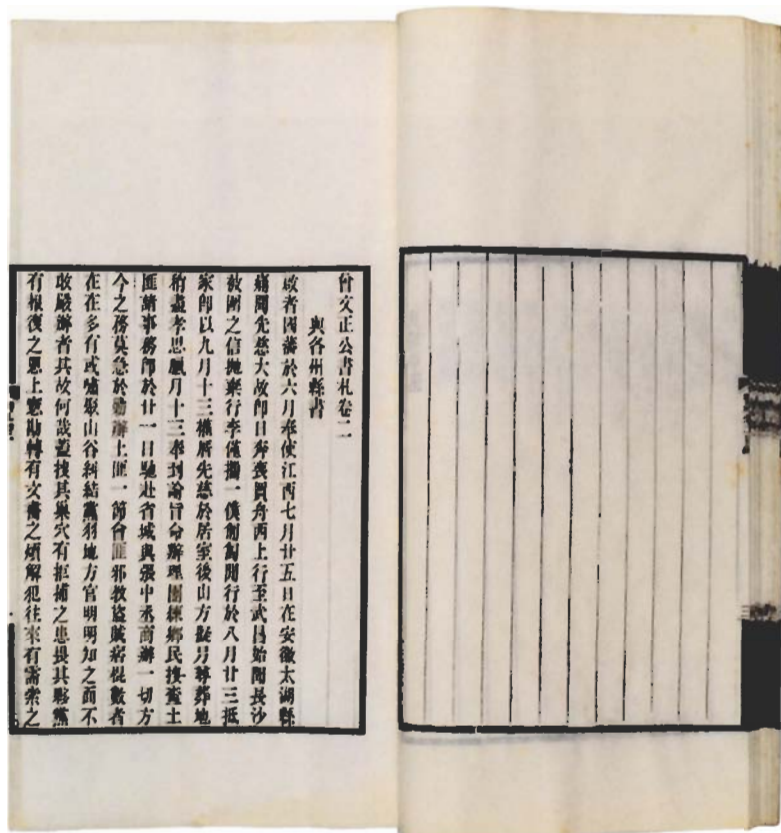 曾文正公書札卷二
與各州縣書
啟者國藩於六月奉使江西七月廿五日在安徽太湖縣
痛聞先慈大故卽日奔喪買舟西上行至武昌始聞長沙
被圍之信拋棄行李僅攜一僕匍匐閒行於八月廿三抵
家卽以九月十三權厝先慈於居室後山方擬另尋葬地
稍盡孝思臘月十三奉到諭旨命辦理團練鄉民搜查土
匪諸事務卽於廿一日馳赴省城與張中丞商辦一切方
今之務莫急於勦辦土匪一節會匪邪教盜賊痞棍數者
在在多有或嘯聚山谷糾結黨羽地方官明明知之而不
敢嚴辦者其故何哉蓋搜其巢穴有拒捕之患畏其夥黨
有報復之思上憲勘轉有文書之煩解犯往來有需索之